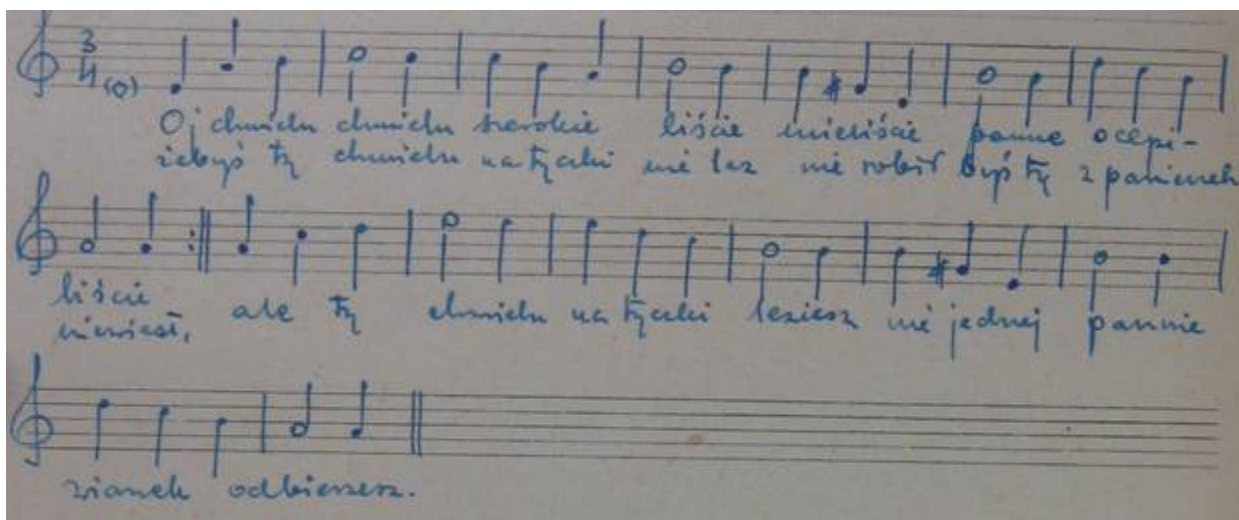 3
4 (o)
Oj chmielu chmielu szerokie liście mieliście panne ocepi-
żebyś ty chmielu na tycki nie laz nie robiłbyś ty z panienek
liście ale ty chmielu na tycki leziesz nie jednej pannie
niewiast,
wianek odbierzesz.